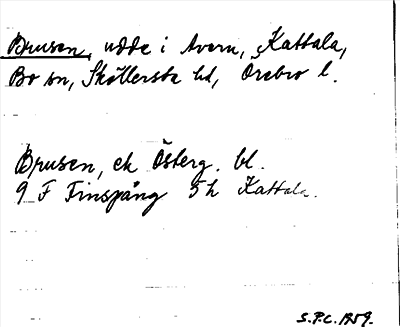 Brusen, udde i Avern, Kattala,
Bo sn, Sköllersta hd, Örebro l.
Brusen, ek Österg. bl.
9 F Finspång 5h Kattala.
S.P.C. 1959.